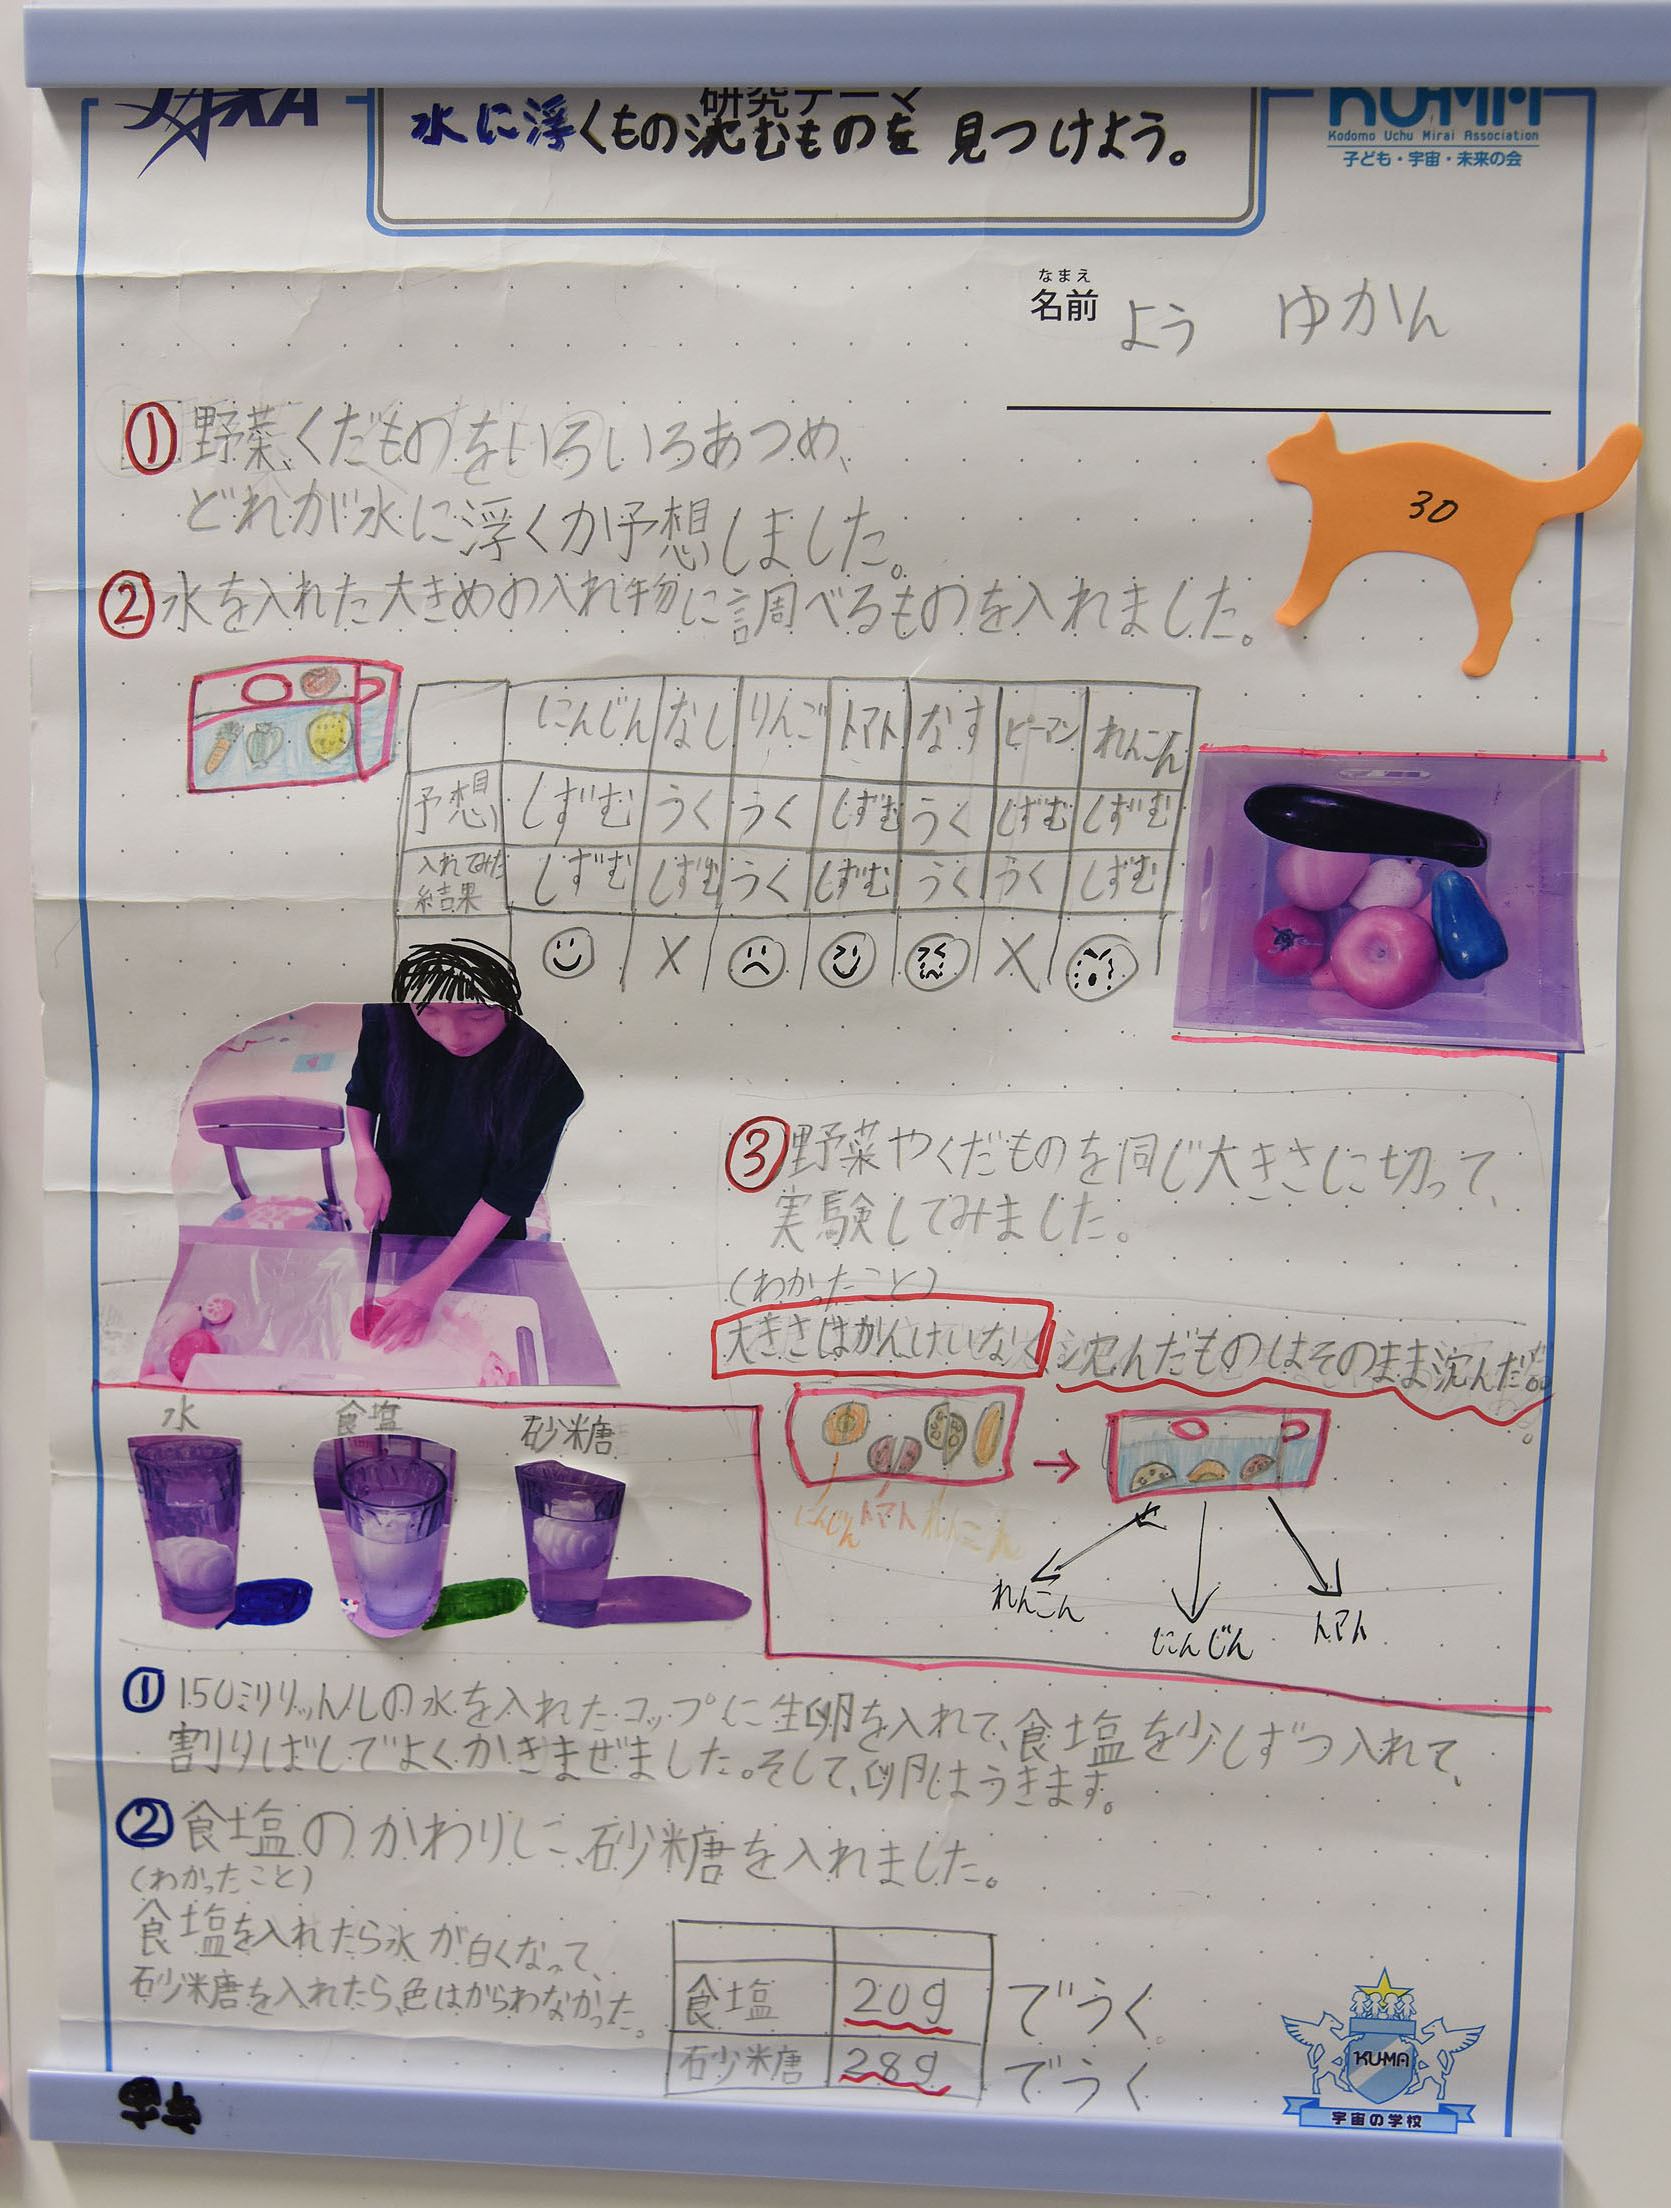 研究テーマ
水に浮くもの沈むものを見つけよう。
KU-MA
Kodomo Uchu Mirai Association
子ども・宇宙・未来の会
なまえ
名前 よう ゆかん
①野菜、くだものをいろいろあつめ、
どれが水に浮くか予想しました。
30
②水を入れた大きめの入れ物に調べるものを入れました。
にんじん なし りんご トマト なす ピーマン れんこん
予想 しずむ うく うく しずむ うく しずむ しずむ
入れてみた結果 しずむ しずむ うく しずむ うく うく しずむ
X X
③野菜やくだものを同じ大きさに切って、
実験してみました。
(わかったこと)
大きさはかんけいなく沈んだものはそのまま沈んだ。
水 食塩 砂米糖
にんじん トマト れんこん
れんこん にんじん トマト
①150ミリリットルの水を入れたコップに生卵を入れて、食塩を少しずつ入れて、
割りばしでよくかきまぜました。そして、卵はうきます。
②食塩のかわりに、砂米糖を入れました。
(わかったこと)
食塩を入れたら水が白くなって、
砂米糖を入れたら、色はがらわなかった。
食塩 20g でうく。
砂米糖 28g でうく
KU-MA
宇宙の学校